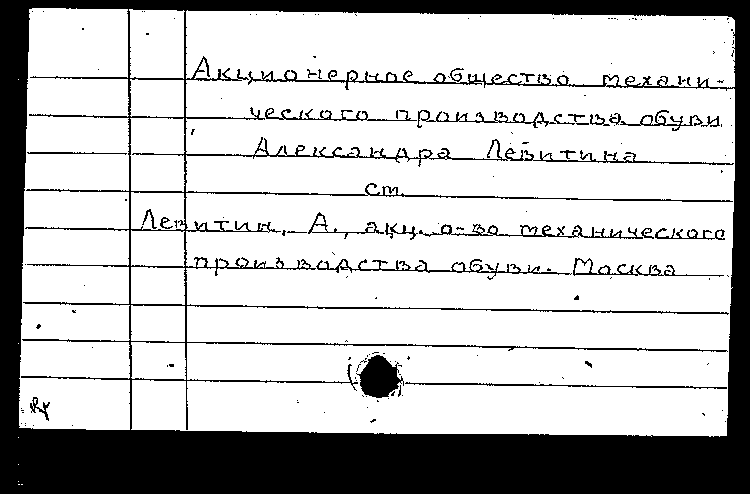 Акционерное общество механи-
ческого производства обуви
Александра Левитина
ст.
Левитин, А., акц. о-во механического
производства обуви. Москва